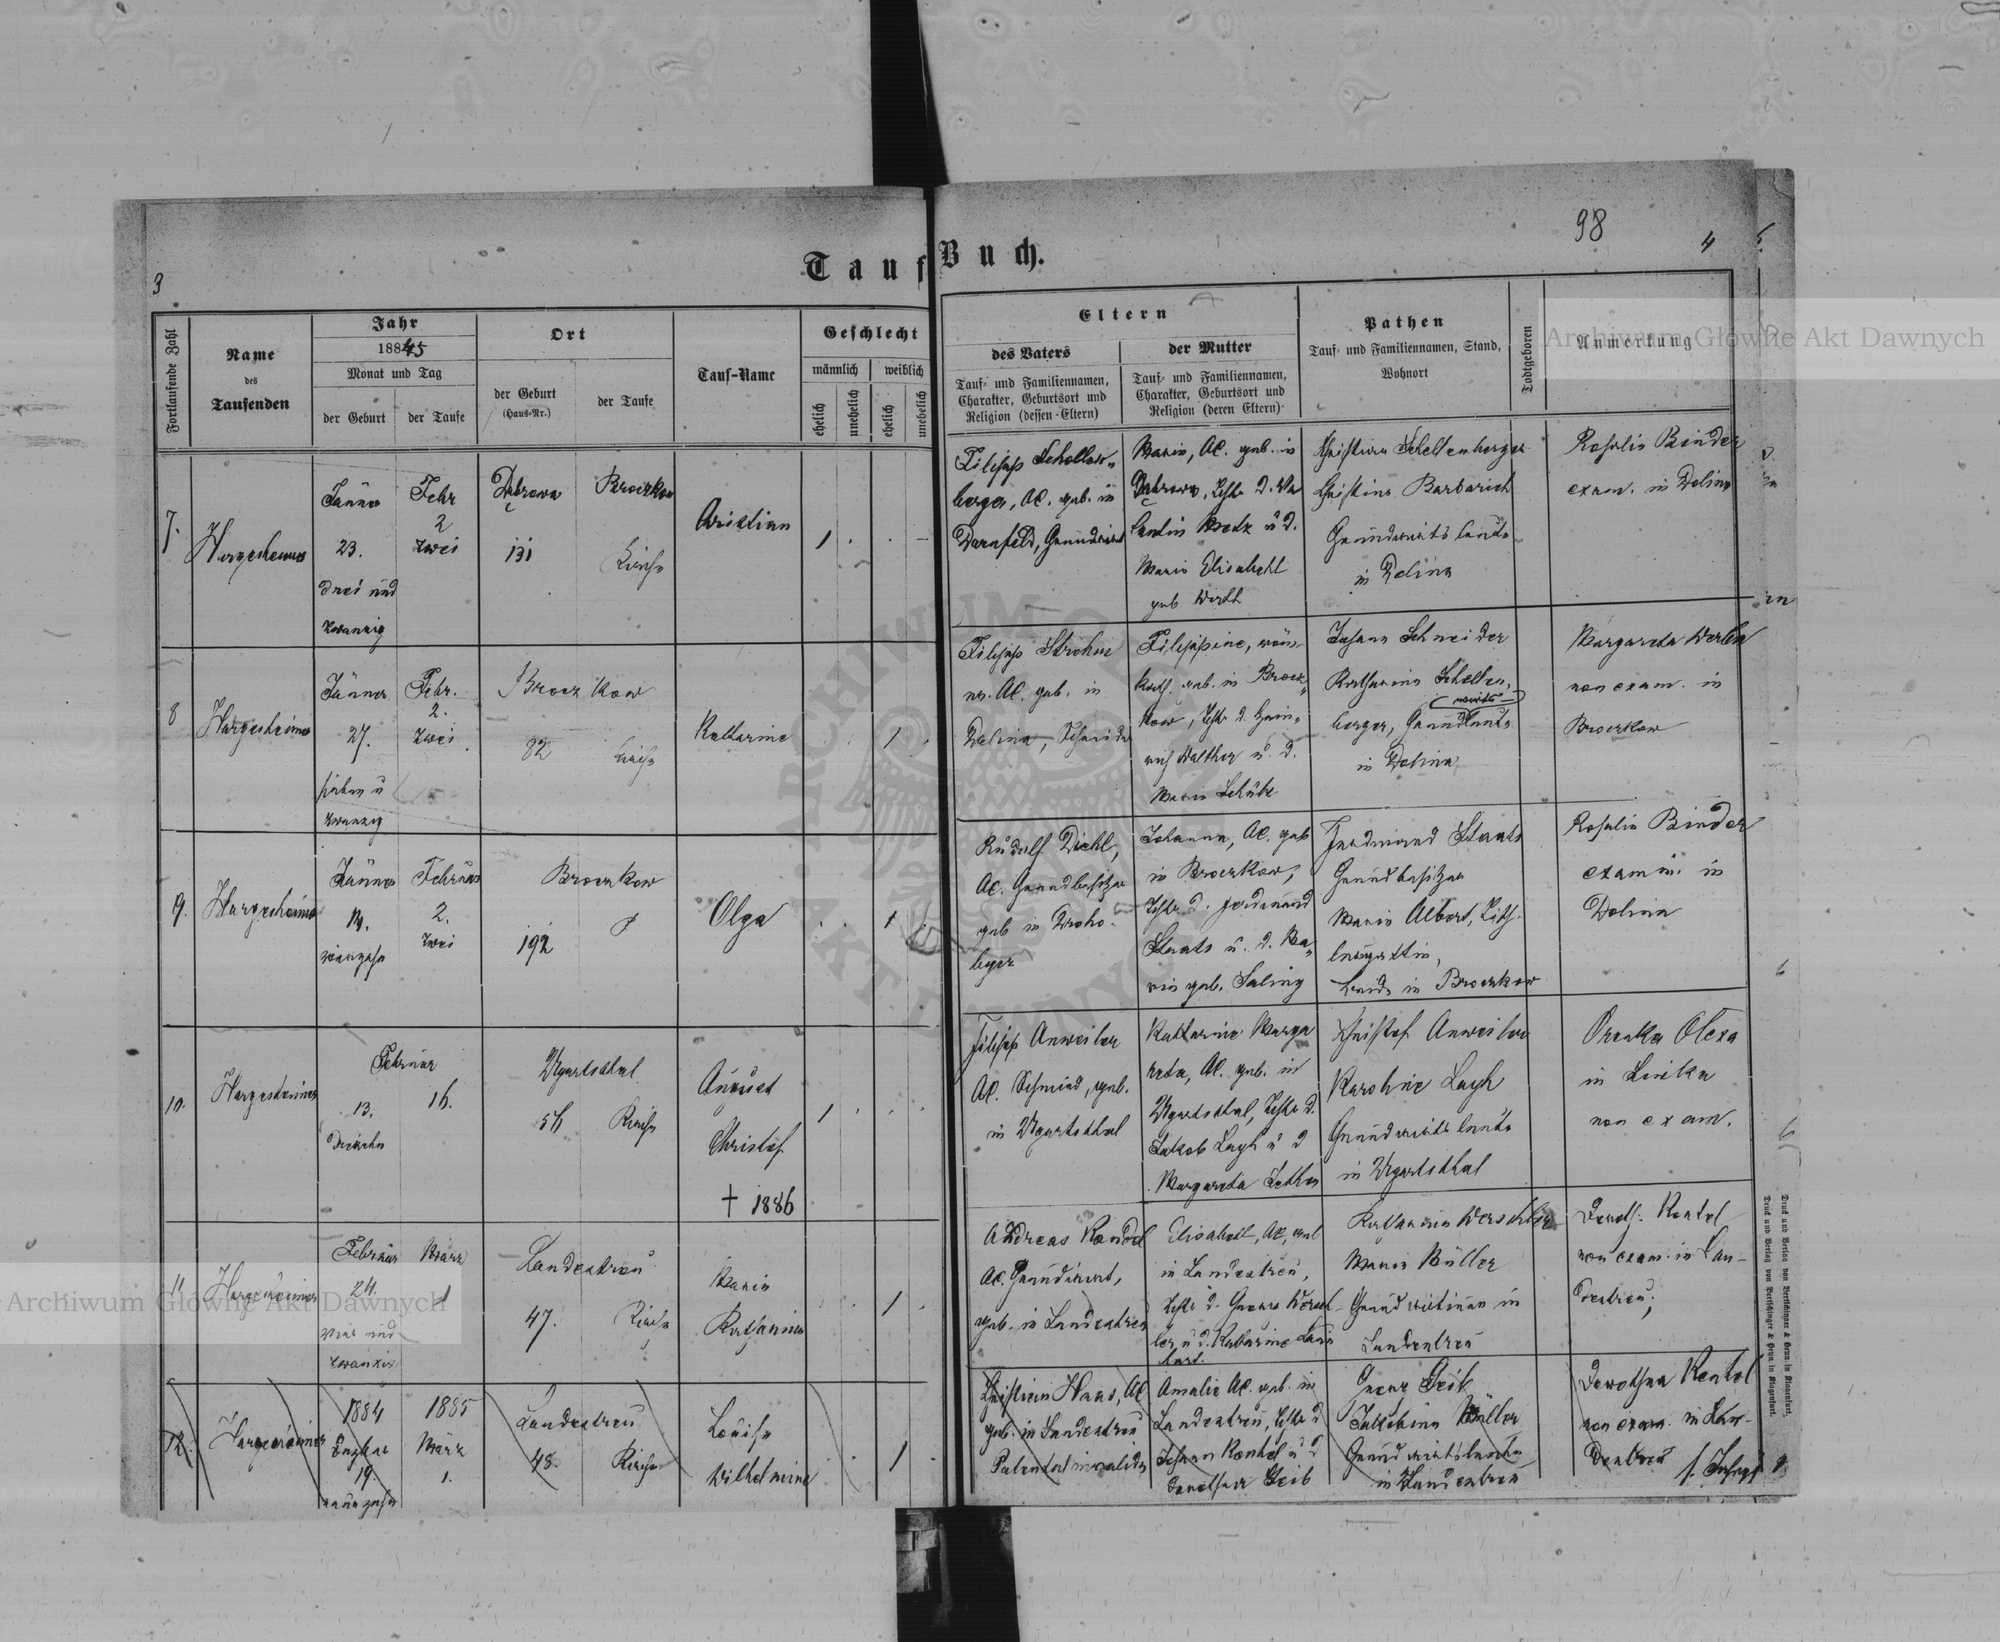 98
3
4
Tauf-Buch.
Fortlaufende Zahl
Name
des
Taufenden
Jahr
1885
Monat und Tag
der Geburt
der Taufe
Ort
der Geburt
(Haus-Nr.)
der Taufe
Tauf-Name
Geschlecht
männlich
weiblich
ehelich
unehelich
ehelich
unehelich
Eltern
des Vaters
Tauf- und Familiennamen,
Charakter, Geburtsort und
Religion (dessen Eltern)
der Mutter
Tauf- und Familiennamen,
Charakter, Geburtsort und
Religion (deren Eltern)
Pathen
Tauf- und Familiennamen, Stand,
Wohnort
Todtgeboren
Anmerkung
7.
Hargesheimer
Jänner
23.
drei und
zwanzig
Febr
2
zwei
Dąbrowa
131
Broczkow
Kirche
Christian
1
Filipp Schollen-
berger, AC. geb. in
Dornfeld, Grundwirt
Maria, AC. geb. in
Dąbrowa, Tochter d. Va
lentin Bretz u d.
Maria Elisabeht
geb Werth
Christian Schellenberger
Christina Barbarich
Grundwirtsleute
in Dolina
Rosalia Binder
exam. in Dolina
8
Hargesheimer
Jänner
27.
sieben u
zwanzig
Febr.
2.
zwei
Broczkow
82
Kirche
Katharine
1
Filipp Strohm
AC. geb. in
Dolina, Schneider
Filippine,
kath. geb. in Brocz
kow, Tochter d. Hein-
rich Walther u. d.
Maria Schübe
Johann Schneider
Katharina Schellen
berger, Grundwirtsleute
in Dolina
Margareta Werle
non exam. in
Broczkow
9.
Hargesheimer
Jänner
14.
vierzehn
Februar
2.
zwei
Broczkow
192
Olga
1
Rudolf Diehl,
AC. Grundbesitzer
geb in Droho-
bycz
Johanna, AC. geb
in Broczkow,
Tochter d. Ferdinand
Staats u. d. Ma
rie geb. Saling
Ferdinand Staats
Grundbesitzer
Maria Albert,
beide in Broczkow
Rosalia Binder
examin. in
Dolina
10.
Hargesheimer
Februar
13.
Dreizehn
16.
Ugartsthal
54
Kirche
August
Christof
† 1886
1
Filipp Anweiler
AC. Schmied, geb.
in Ugartsthal
Katharine Marga
reta, AC. geb. in
Ugartsthal, Tochter d.
Jakob Lagh u d
Margareta
Christof Anweiler
Karoline Lagh
Grundwirtsleute
in Ugartsthal
Olexa
in
non exam.
11
Hargesheimer
Februar
24.
vier und
zwanzig
März
1
Landestreu
47.
Kirche
Maria
Katharina
1
Andreas Kandel
AC. Grundwirt,
geb. in Landestreu
Elisabeth, AC, geb
in Landestreu,
Tochter d. Georg Wersch
ler u d. Katharine
Katharina Werschler
Maria Müller
Grundwirtinnen in
Landestreu
Doroth. Kentel
non exam. in Lan-
destreu,
12.
Hargesheimer
1884
Dezber
19
neunzehn
1885
März
1.
Landestreu
48.
Kirche
Louise
Wilhelmine
1
Christian Haas, AC
geb. in Landestreu
Patentalinvalide
Amalie AC. geb. in
Landestreu, Tochter d
Johann Kentel u d
Dorothea Geib
Georg Geib
Jakobina Müller
Grundwirtsleute
in Landestreu
Dorothea Kentel
non exam. in Lan-
destreu
Druck und Verlag von Bertschinger & Heyn in Klagenfurt.
Archiwum Główne Akt Dawnych
Archiwum Główne Akt Dawnych